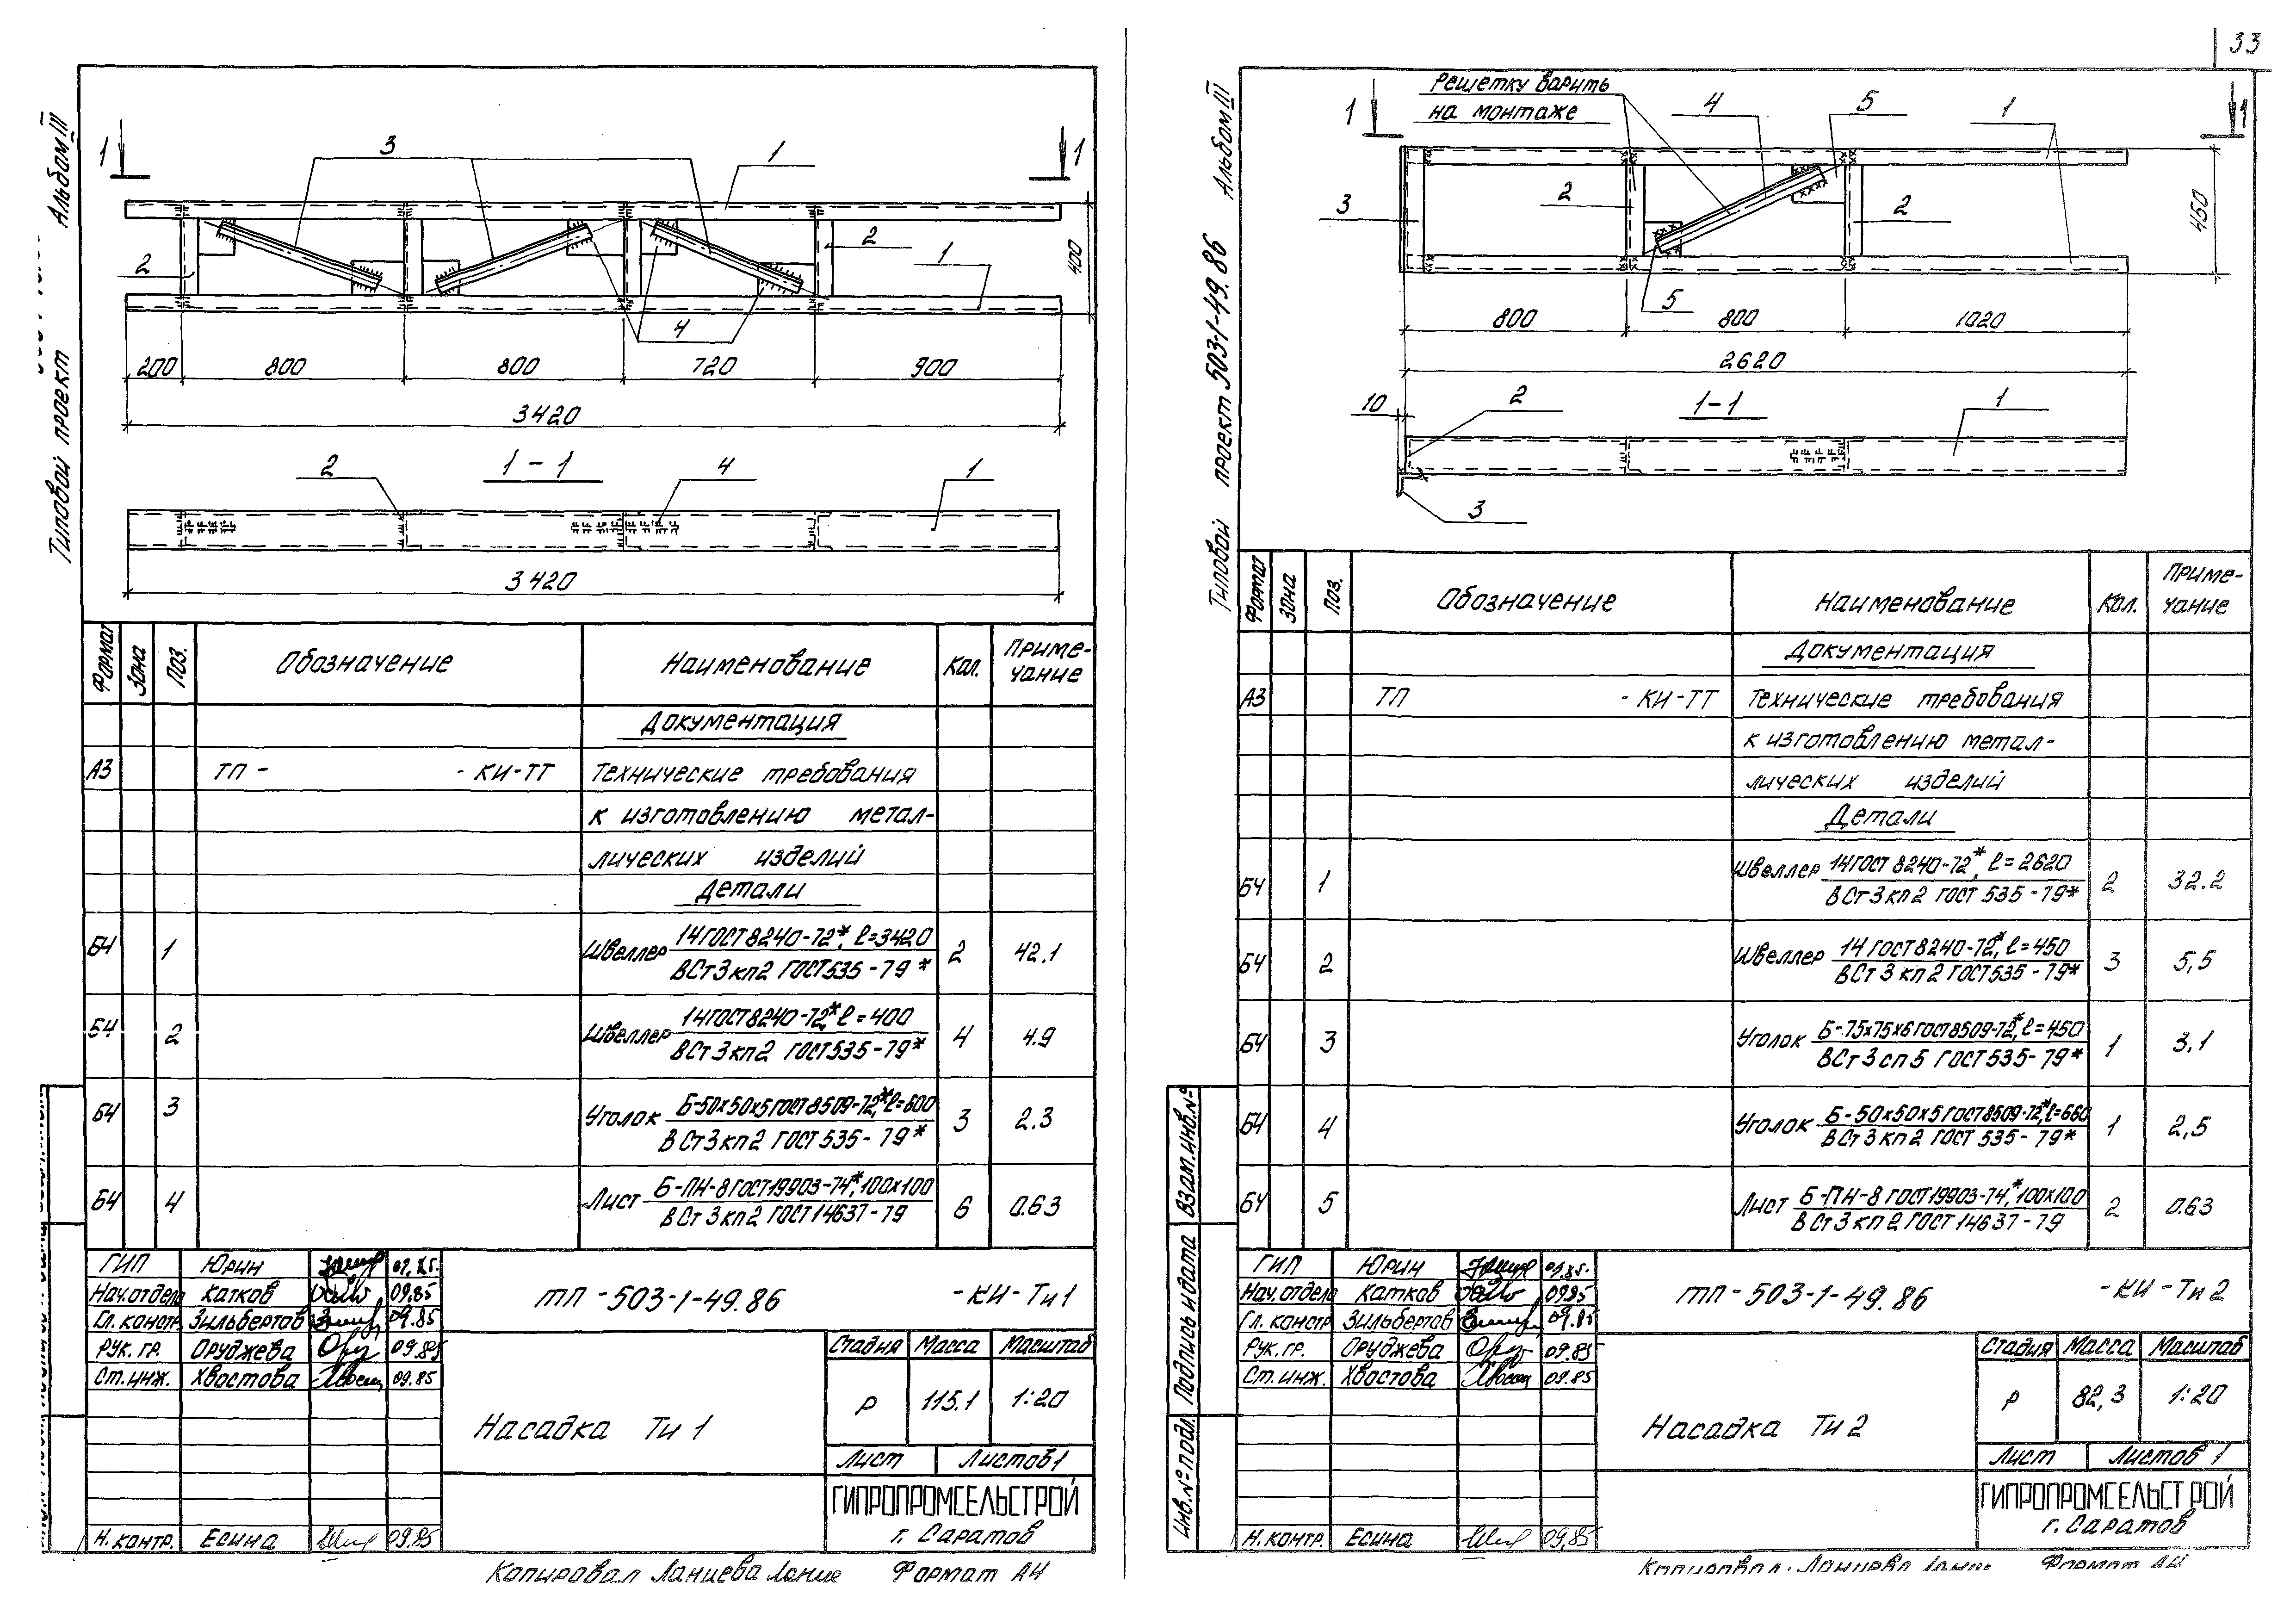 33
Альбом III
Типовой проект
1
1
3
1
2
2
1
4
400
200
800
800
720
900
3420
1-1
2
4
1
3420
Формат
Зона
Поз.
Обозначение
Наименование
Кол.
Приме-
чание
Документация
А3 ТП - - КИ-ТТ Технические требования
к изготовлению метал-
лических изделий
Детали
БЧ 1 Швеллер 14 ГОСТ 8240-72*, ℓ=3420 2 42.1
ВСт3кп2 ГОСТ 535-79*
БЧ 2 Швеллер 14 ГОСТ 8240-72* ℓ=400 4 4.9
ВСт3кп2 ГОСТ 535-79*
БЧ 3 Уголок Б-50х50х5 ГОСТ 8509-72*, ℓ=600 3 2.3
ВСт3кп2 ГОСТ 535-79*
БЧ 4 Лист Б-ПН-8 ГОСТ 19903-74*, 100х100 6 0.63
ВСт3кп2 ГОСТ 14637-79
ГИП Юрин 09.85.
Нач.отдела Катков 09.85
Гл. констр. Зильбертов 09.85
Рук. гр. Оруджева 09.85
Ст. инж. Хвостова 09.85
Н. контр. Есина 09.85
ТП-503-1-49.86 -КИ-Ти1
Насадка Ти 1
Стадия Масса Масштаб
Р 115.1 1:20
Лист Листов 1
ГИПРОПРОМСЕЛЬСТРОЙ
г. Саратов
Копировал Ланцева Формат А4
Альбом III
Типовой проект 503-1-49.86
Решетку варить
на монтаже
1
1
4
5
1
3
2
2
5
450
800
800
1020
2620
10
2
1-1
1
3
Формат
Зона
Поз.
Обозначение
Наименование
Кол.
Приме-
чание
Документация
А3 ТП - КИ-ТТ Технические требования
к изготовлению метал-
лических изделий
Детали
БЧ 1 Швеллер 14 ГОСТ 8240-72*, ℓ=2620 2 32.2
ВСт3кп2 ГОСТ 535-79*
БЧ 2 Швеллер 14 ГОСТ 8240-72*, ℓ=450 3 5,5
ВСт3кп2 ГОСТ 535-79*
БЧ 3 Уголок Б-75х75х6 ГОСТ 8509-72*, ℓ=450 1 3.1
ВСт3сп5 ГОСТ 535-79*
БЧ 4 Уголок Б-50х50х5 ГОСТ 8509-72*, ℓ=660 1 2,5
ВСт3кп2 ГОСТ 535-79*
БЧ 5 Лист Б-ПН-8 ГОСТ 19903-74,* 100х100 2 0.63
ВСт3кп2 ГОСТ 14637-79
Взам.инв.№
Подпись и дата
Инв.№ подл.
ГИП Юрин 09.85.
Нач.отдела Катков 09.85
Гл. констр. Зильбертов 09.85
Рук. гр. Оруджева 09.85
Ст. инж. Хвостова 09.85
Н. контр. Есина 09.85
ТП-503-1-49.86 -КИ-Ти2
Насадка Ти 2
Стадия Масса Масштаб
Р 82,3 1:20
Лист Листов 1
ГИПРОПРОМСЕЛЬСТРОЙ
г. Саратов
Копировал Ланцева Формат А4